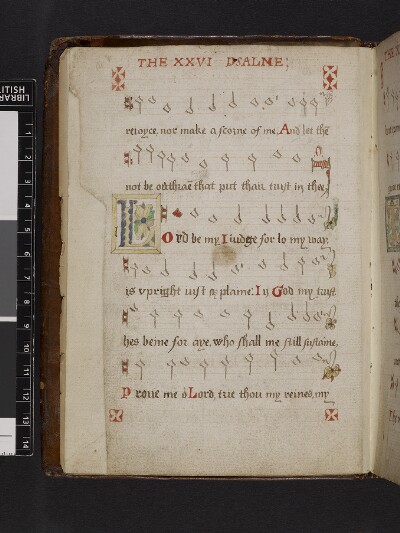 THE XXVI PSALME;
reioyce, nor make a scorne of me, And let the
not be that put thair trist in thee,
Lord be my Iudge for lo my way.
is vpright iust & plaine: In God my trist
hes beine for aye, who shall me still sustaine,
Proue me o Lord, trie thou my reines, my